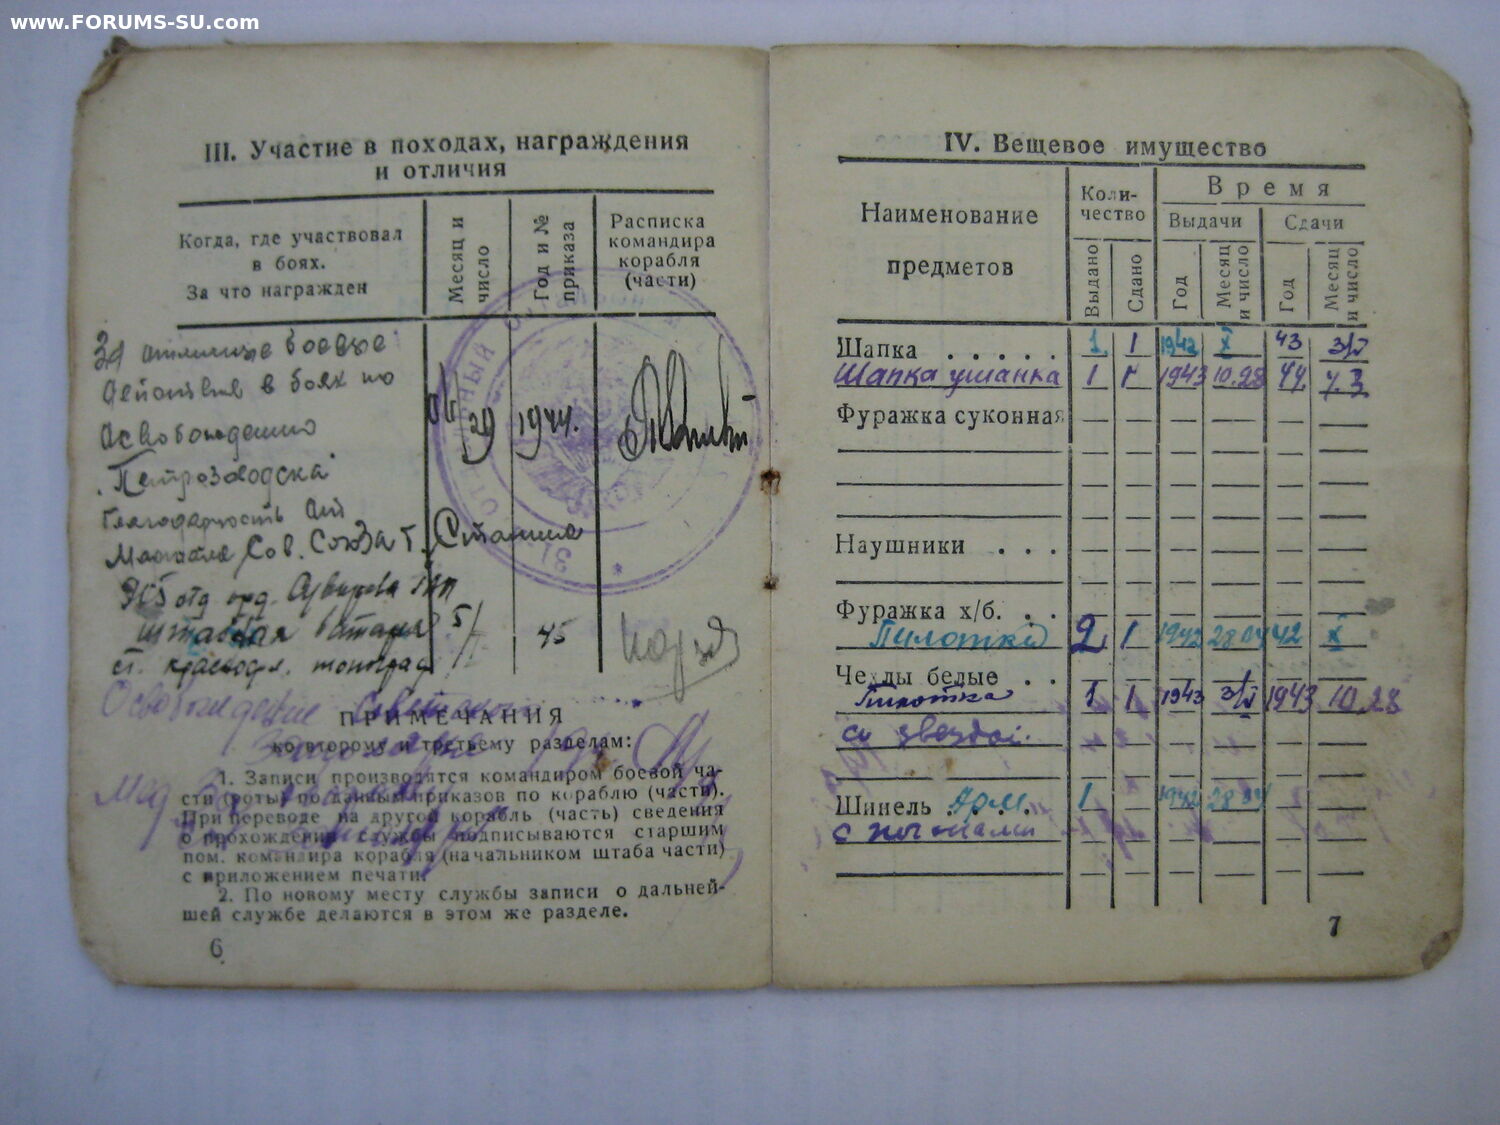 www.FORUMS-SU.com
III. Участие в походах, награждения
и отличия
Когда, где участвовал
в боях.
За что награжден
Месяц и
число
Год и №
приказа
Расписка
командира
корабля
(части)
За отличные боевые
действия в боях по
Освобождению
Петрозаводска
29 1944.
благодарность
Маршала Сов. Союза т. Сталина
отд орд.
штабная батарея 5/ 45
ст. красноф. топограф
Освобождение Советского
Заполярья
ПРИМЕЧАНИЯ
ко второму и третьему разделам:
1. Записи производятся командиром боевой ча-
сти (роты) по данным приказов по кораблю (части).
При переводе на другой корабль (часть) сведения
о прохождении службы подписываются старшим
пом. командира корабля (начальником штаба части)
с приложением печати.
2. По новому месту службы записи о дальней-
шей службе делаются в этом же разделе.
6
IV. Вещевое имущество
Наименование
предметов
Коли-
чество
Время
Выдачи
Сдачи
Выдано
Сдано
Год
Месяц
и число
Год
Месяц
и число
Шапка . . . . . 1 1 1942 X 43
Шапка ушанка 1 1 1943 10.28 44 7.3
Фуражка суконная
Наушники . . .
Фуражка х/б. . .
Пилотка 2 1 1942 28 04 42 X
Чехлы белые . .
Пилотка 1 1 1943 1943 10.28
со звездой.
Шинель арм. 1 1942 28 04
с погонами
7